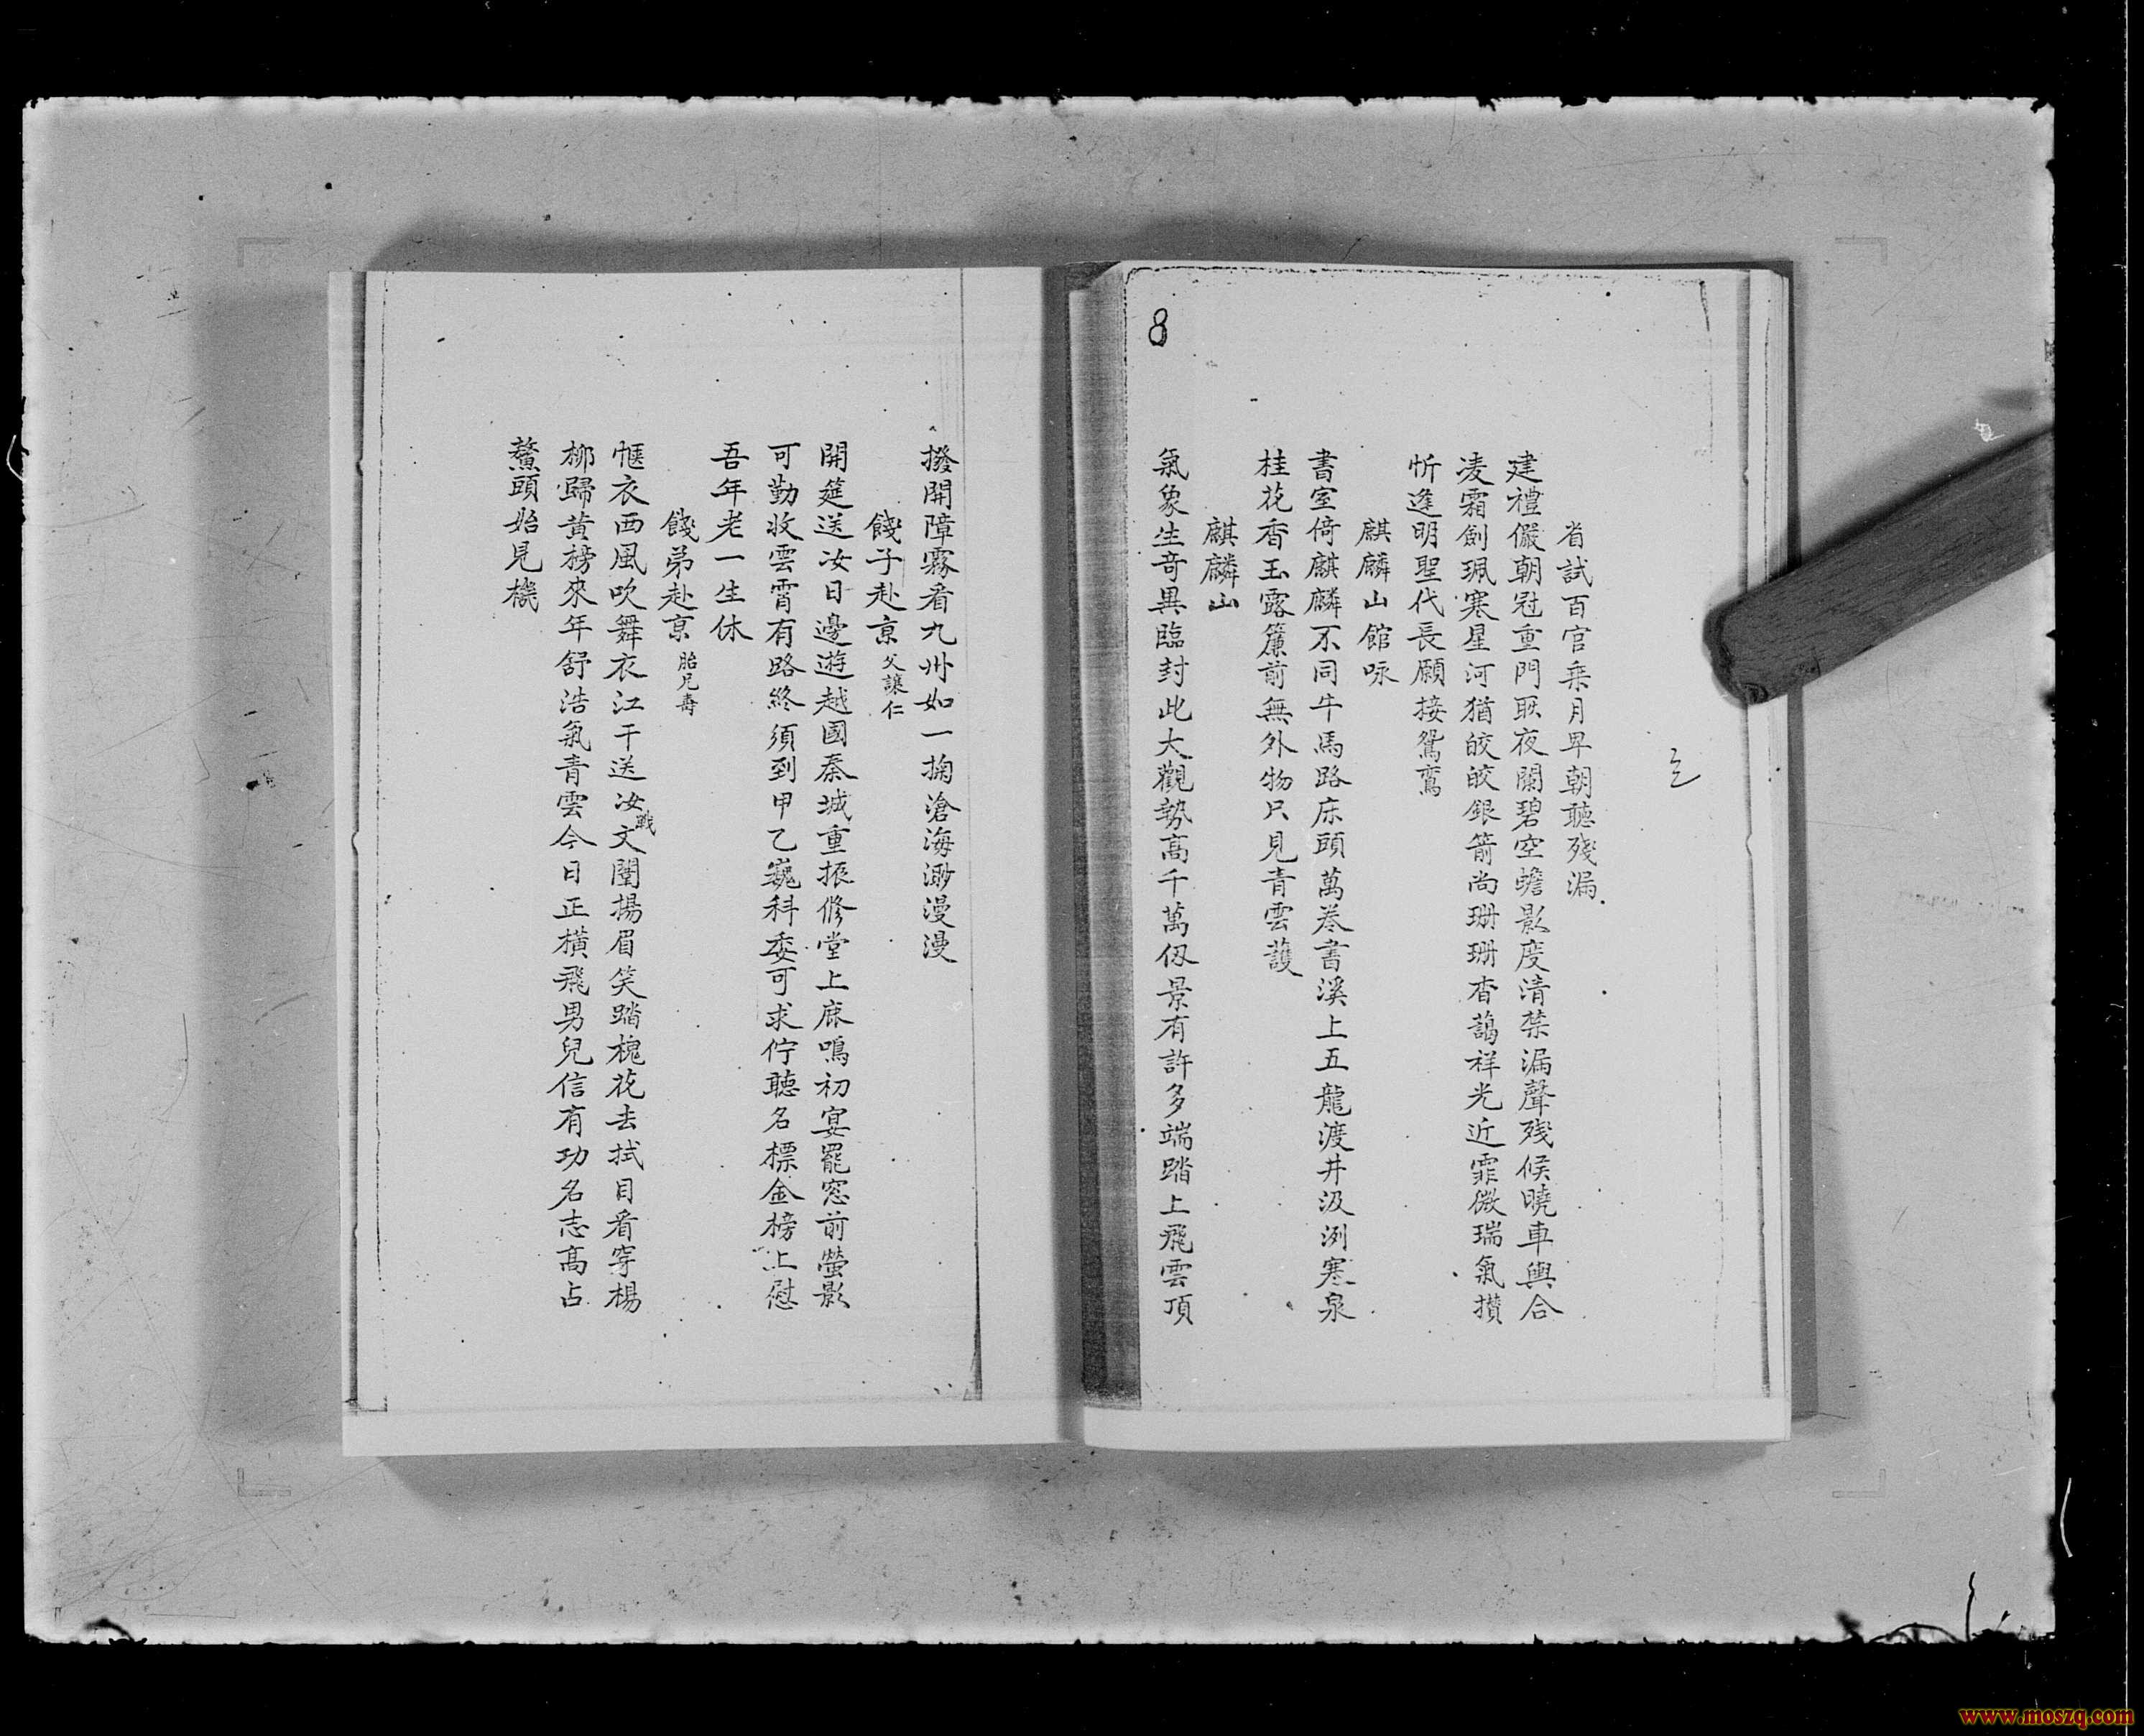 省試百官乗月早朝聽殘漏
建禮儼朝冠重門耿夜闌碧空蟾影度清禁漏聲残候曉車輿合
凌霜劍珮寒星河猶皎皎銀箭尚珊珊杳藹祥光近霏微瑞氣攅
忻逢明聖代長願接鴛鸞
麒麟山館咏
書室倚麒麟不同牛馬路床頭萬卷書溪上五龍渡井汲冽寒泉
桂花香玉露簾前無外物只見青雲護
麒麟山
氣象生竒異臨封此大觀勢高千萬仭景有許多端踏上飛雲頂
8
撥開障霧看九州如一掬滄海渺漫漫
餞子赴京 父讓仁
開筵送汝日邊遊越國秦城重振修堂上鹿鳴初宴罷窓前螢影
可勤收雲霄有路終須到甲乙巍科委可求佇聽名標金榜上慰
吾年老一生休
餞弟赴京 胎兄壽
愜衣西風吹舞衣江干送汝戰文闈揚眉笑踏槐花去拭目看穿楊
柳歸黃榜來年舒浩氣青雲今日正橫飛男兒信有功名志高占
鰲頭始見機
www.moszq.com